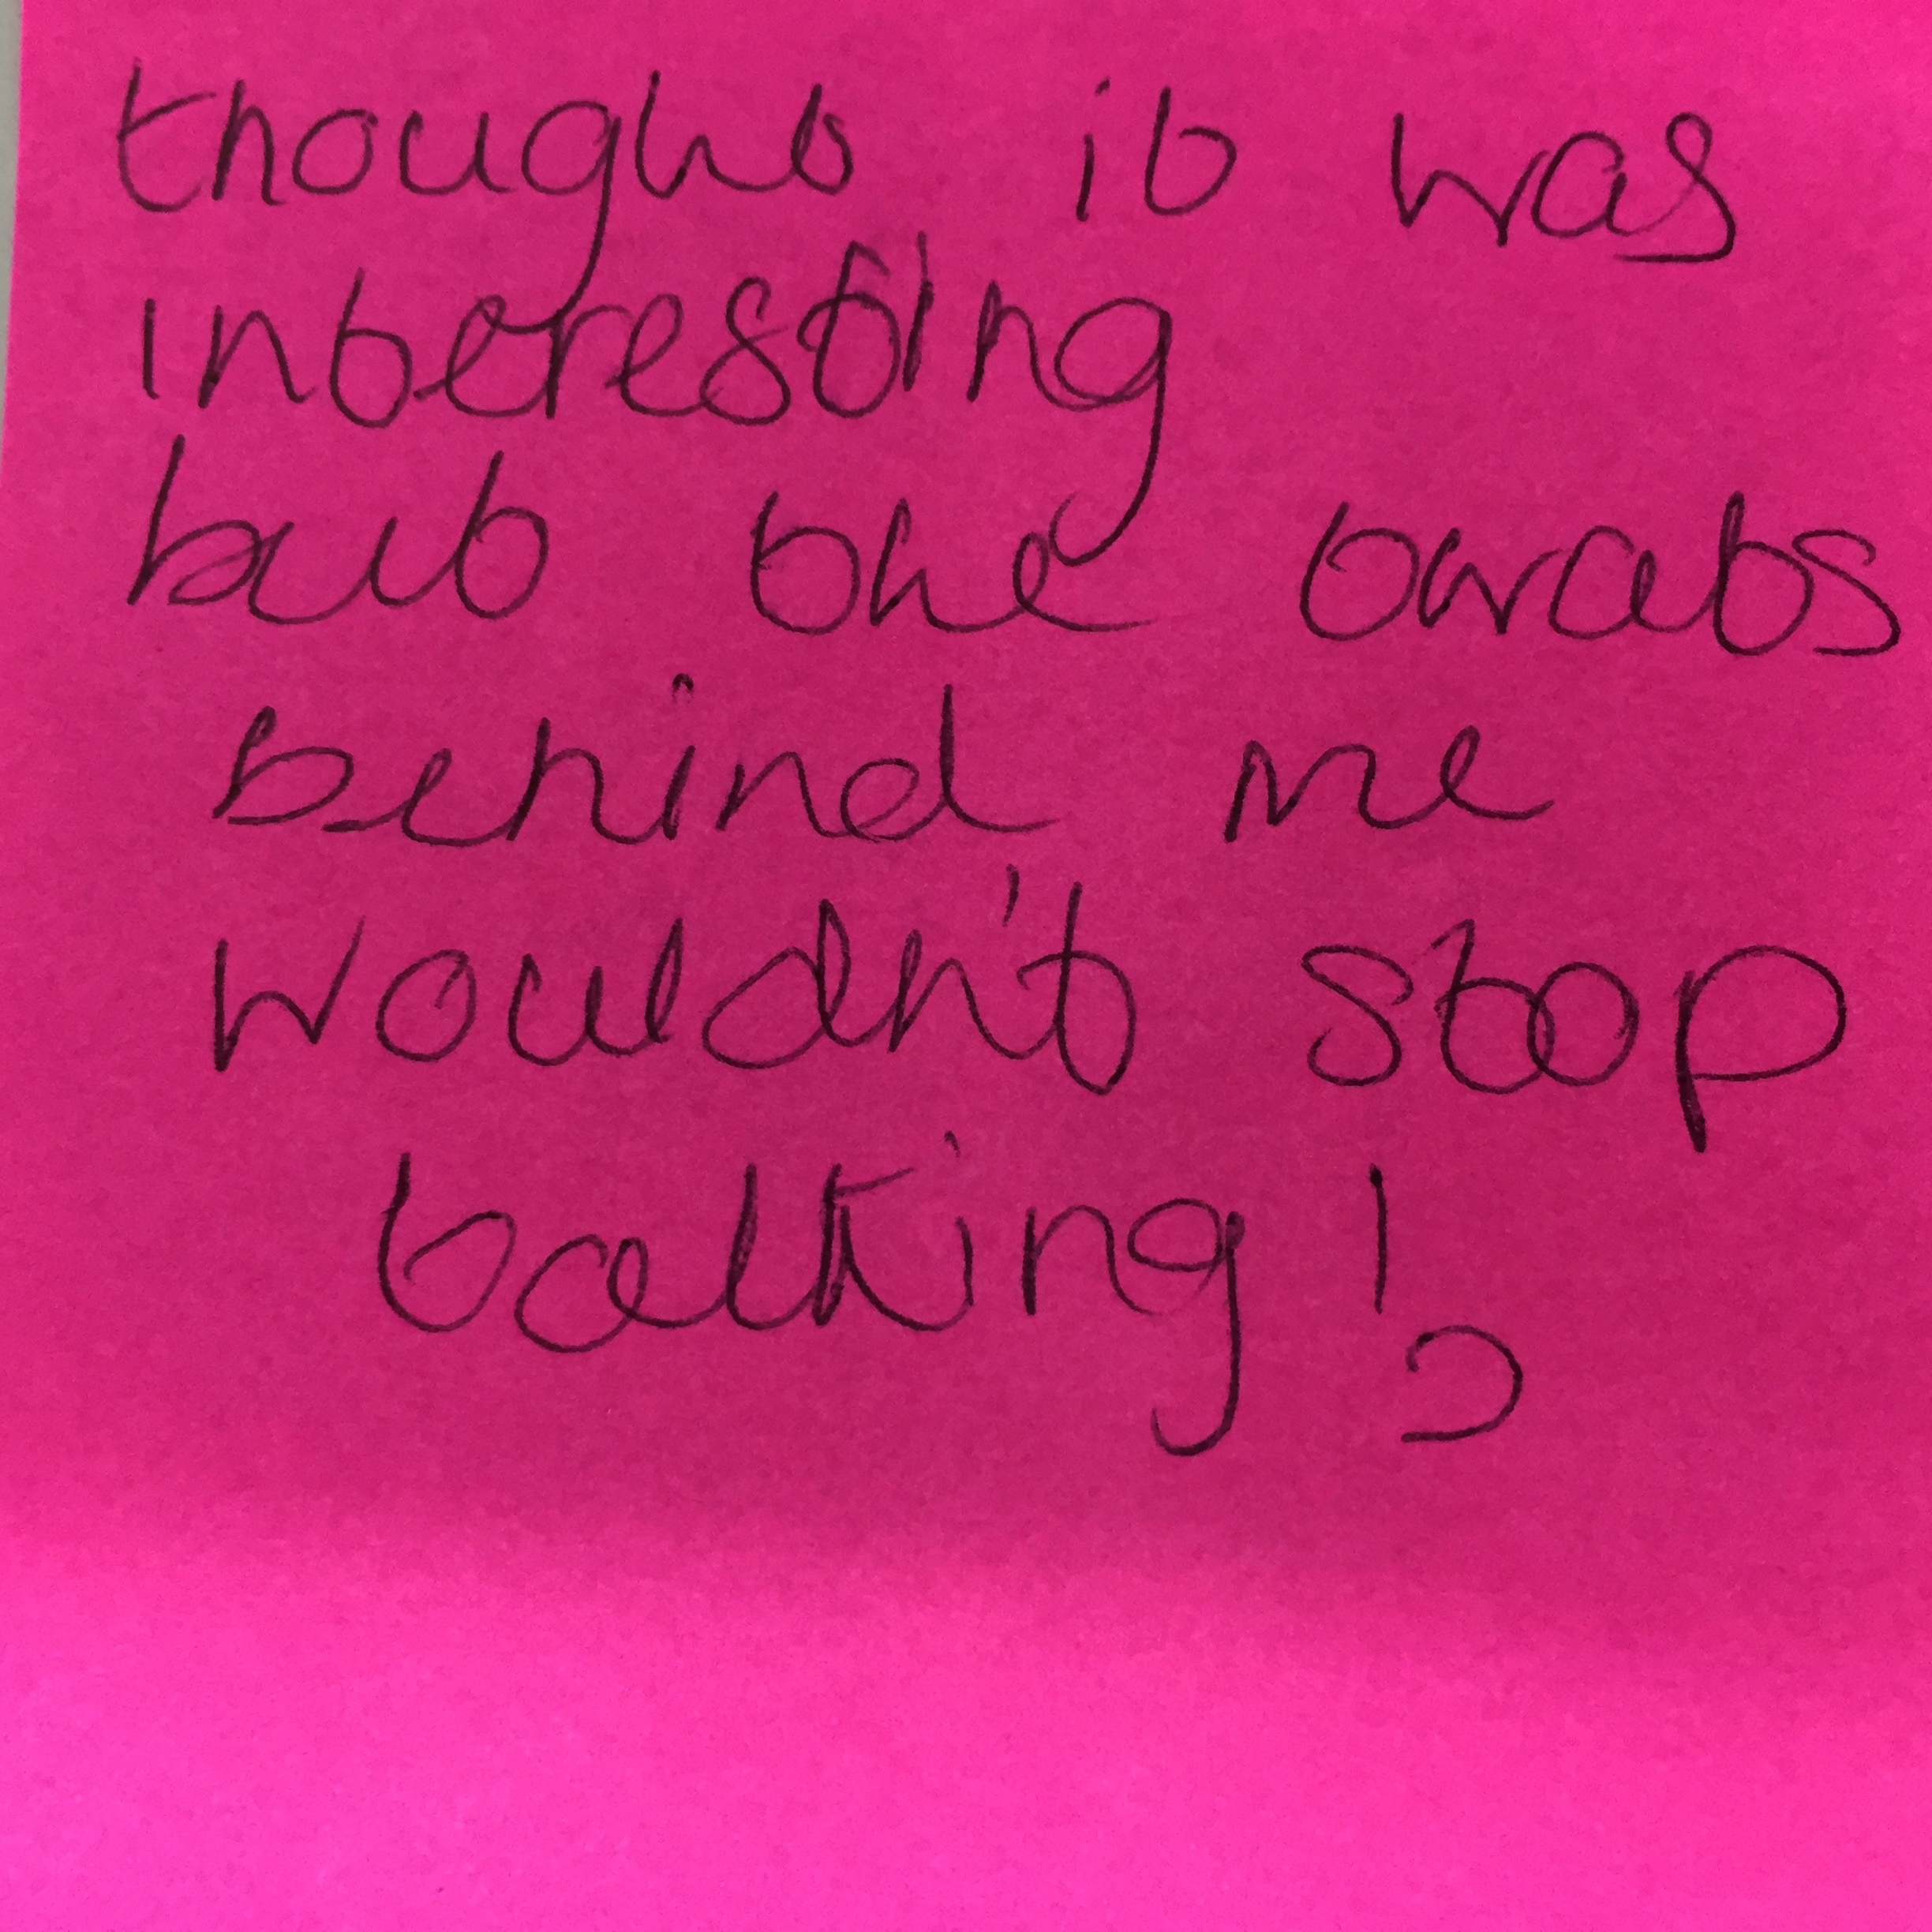 thought it was
interesting
but the twats
behind me
wouldn't stop
talking!